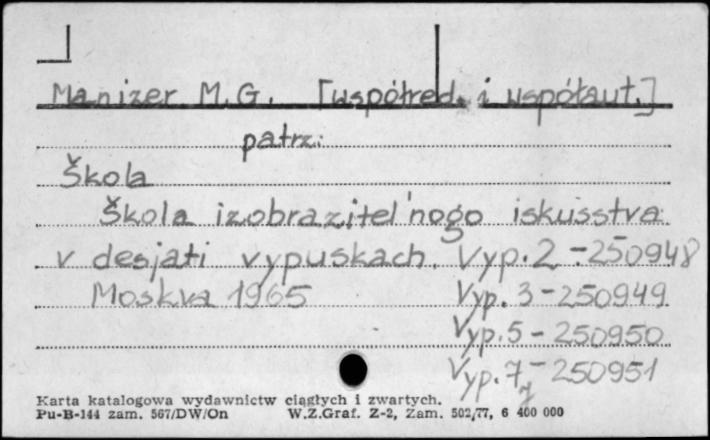 Manizer M.G. [współred. i współaut.]
patrz:
Škola
Škola izobrazitel'nogo iskusstva
v desjati vypuskach. Vyp. 2 - 250948
Moskva 1965 Vyp. 3 - 250949
Vyp. 5 - 250950
Vyp. 7 - 250951
Karta katalogowa wydawnictw ciągłych i zwartych.
Pu-B-144 zam. 567/DW/On W.Z.Graf. Z-2, Zam. 502/77, 6 400 000